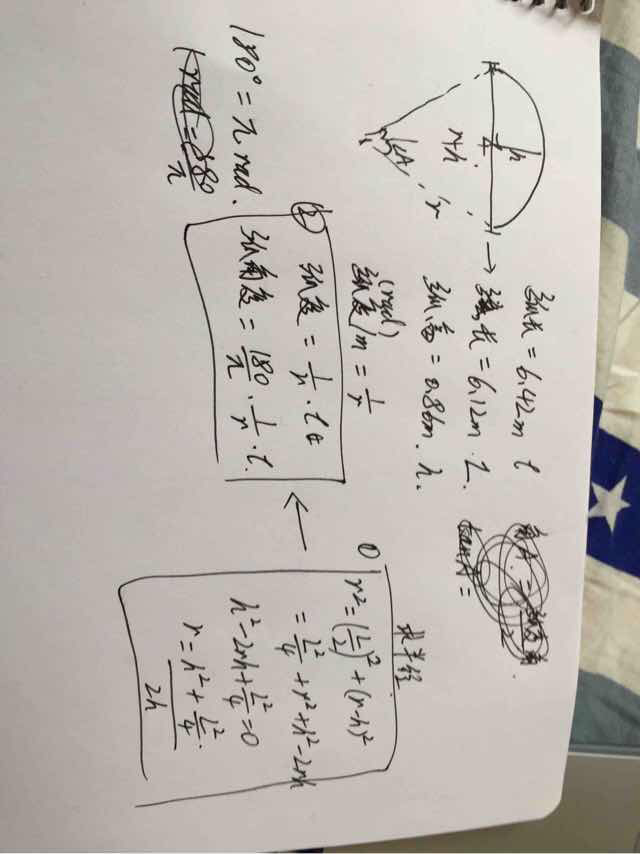 h
r-h
∠A
r
弧长 = 6.42m l
→ 弦长 = 6.12m. L.
弧高 = 0.86m. h.
(rad)
弧度/m = 1/r
②
弧度 = 1/r · l
弧角度 = 180/π · 1/r · l.
180° = π rad.
求半径
①
r² = (L/2)² + (r-h)²
= L²/4 + r² + h² - 2rh
h² - 2rh + L²/4 = 0
r = (h² + L²/4)/2h